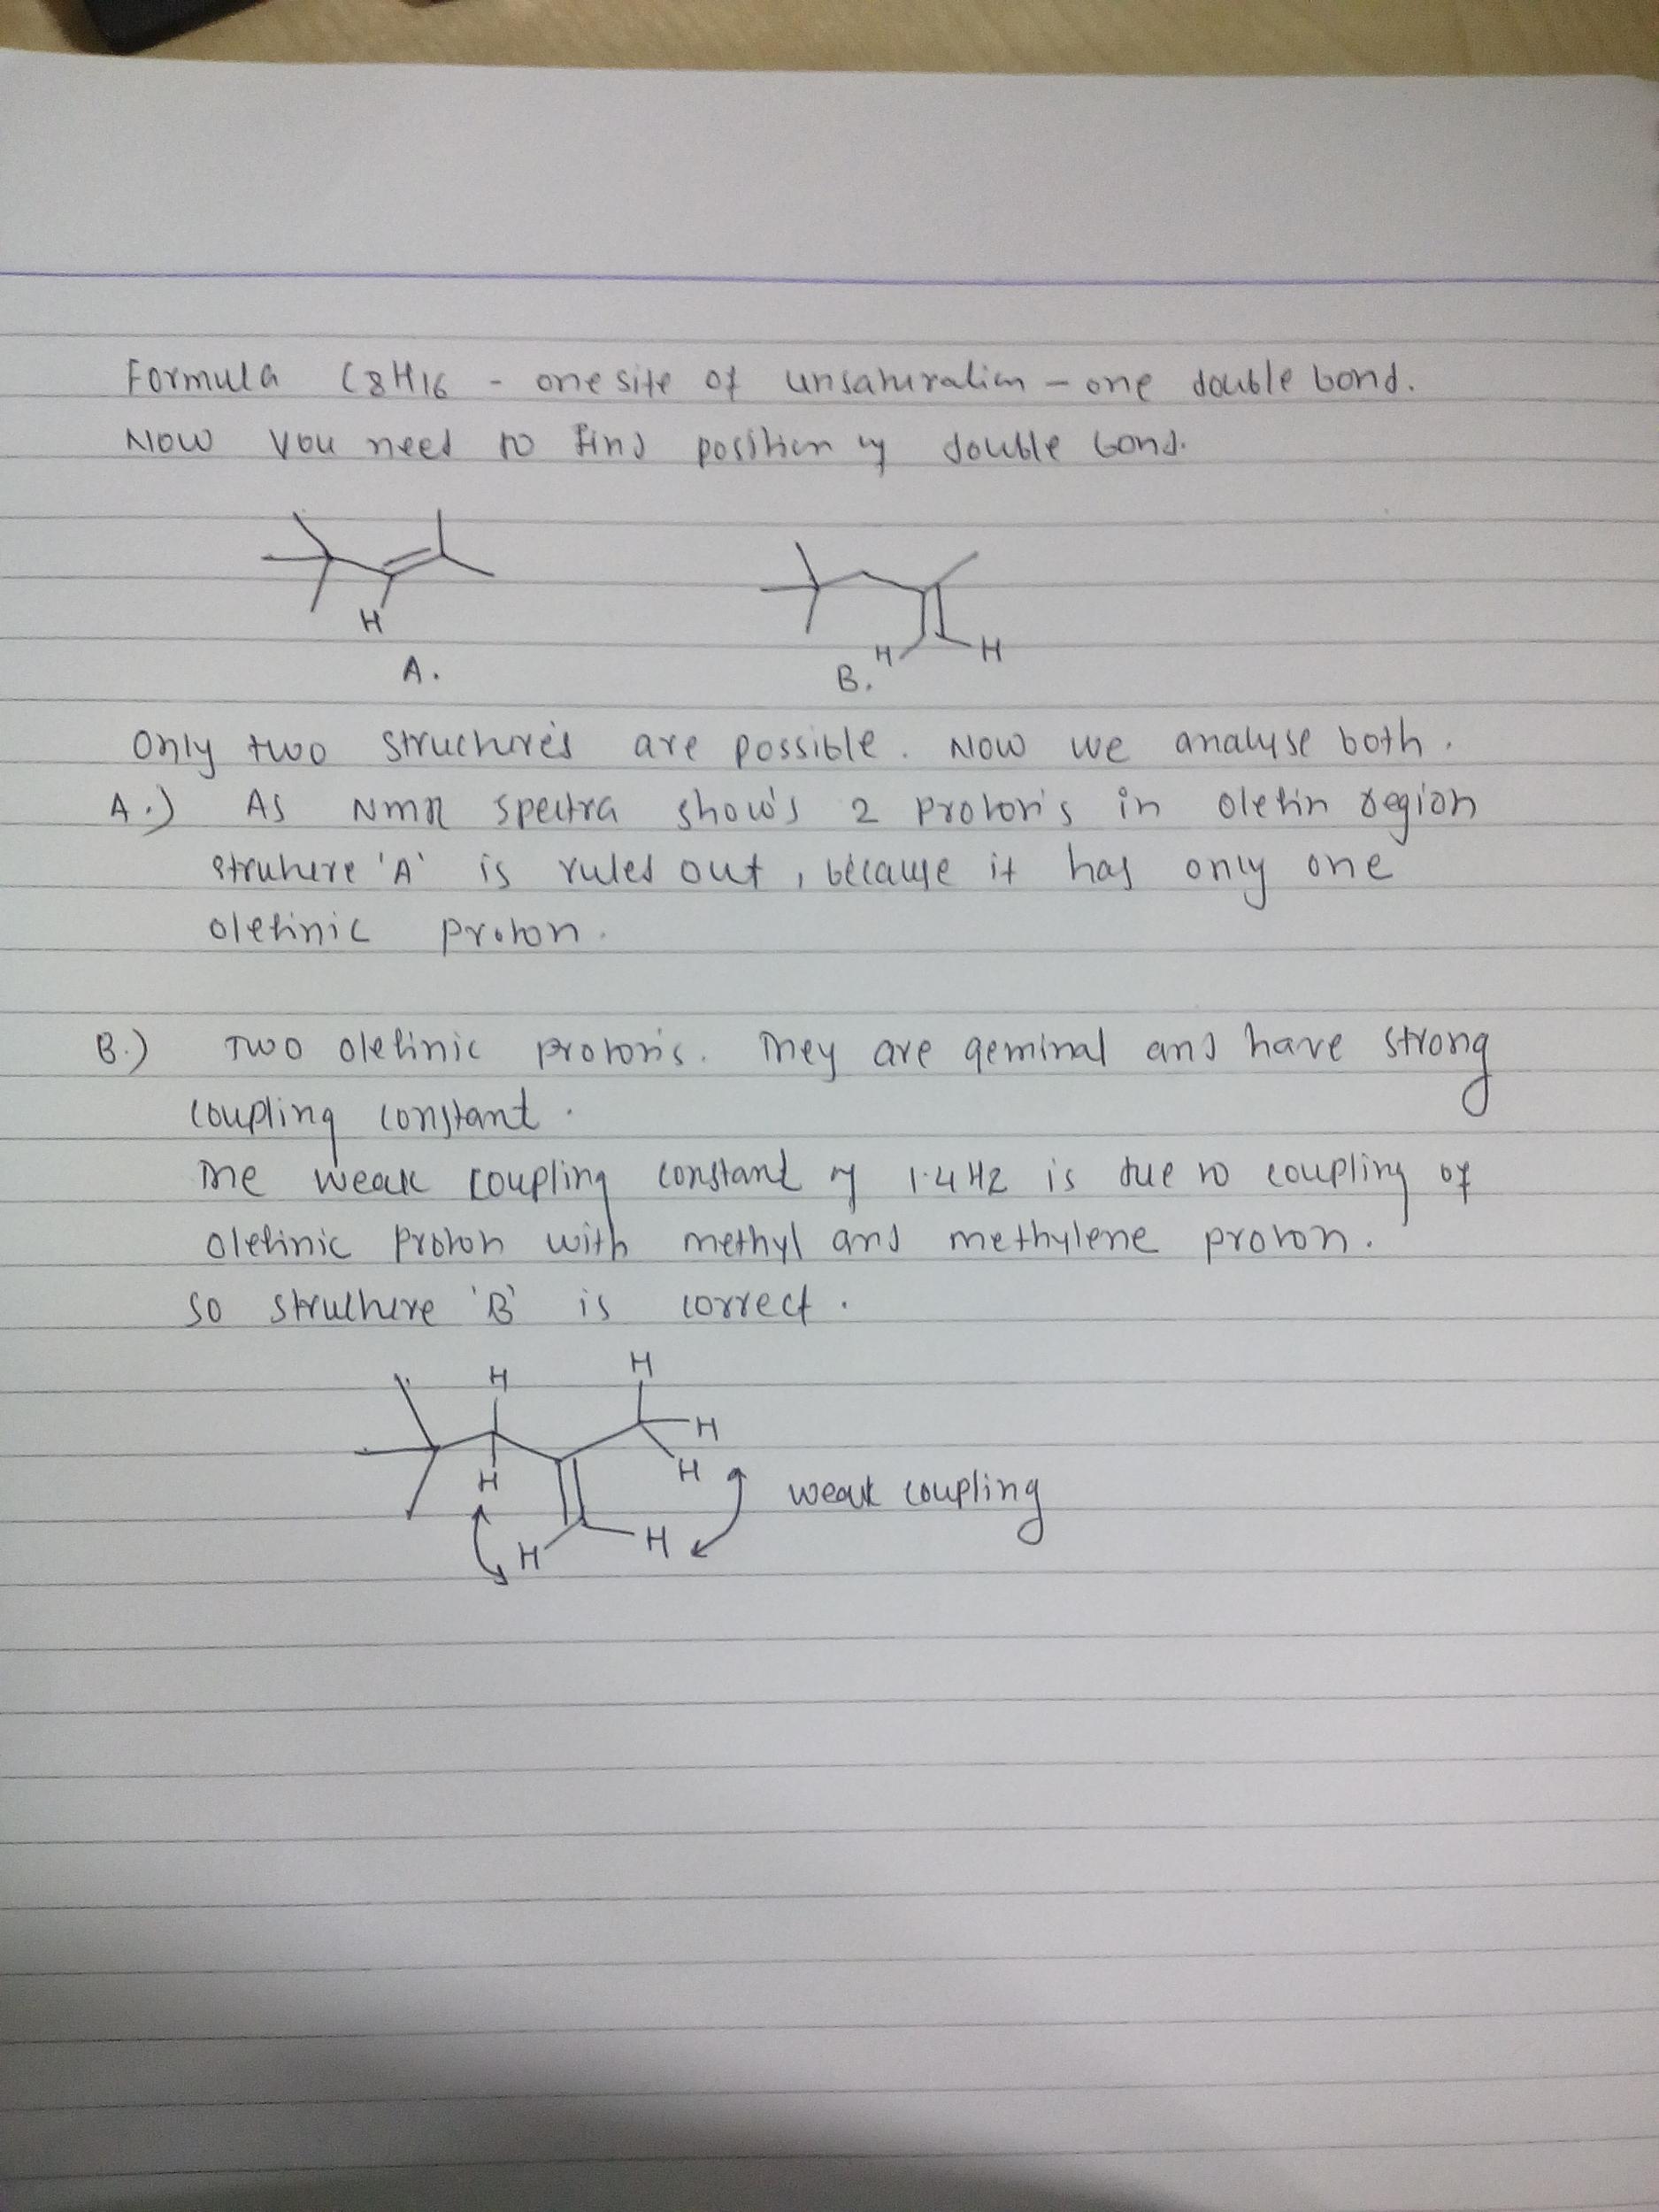 Formula C8H16 - one site of unsaturation - one double bond.
Now you need to find position of double bond.
H
A.
H H
B.
Only two structure's are possible. Now we analyse both.
A.) As NMR spectra show's 2 proton's in olefin region
structure 'A' is ruled out, because it has only one
olefinic proton.
B.) Two olefinic proton's. They are geminal and have strong
coupling constant.
The weak coupling constant of 1.4 Hz is due to coupling of
olefinic proton with methyl and methylene proton.
so structure 'B' is correct.
H H
H
H H
weak coupling
H H